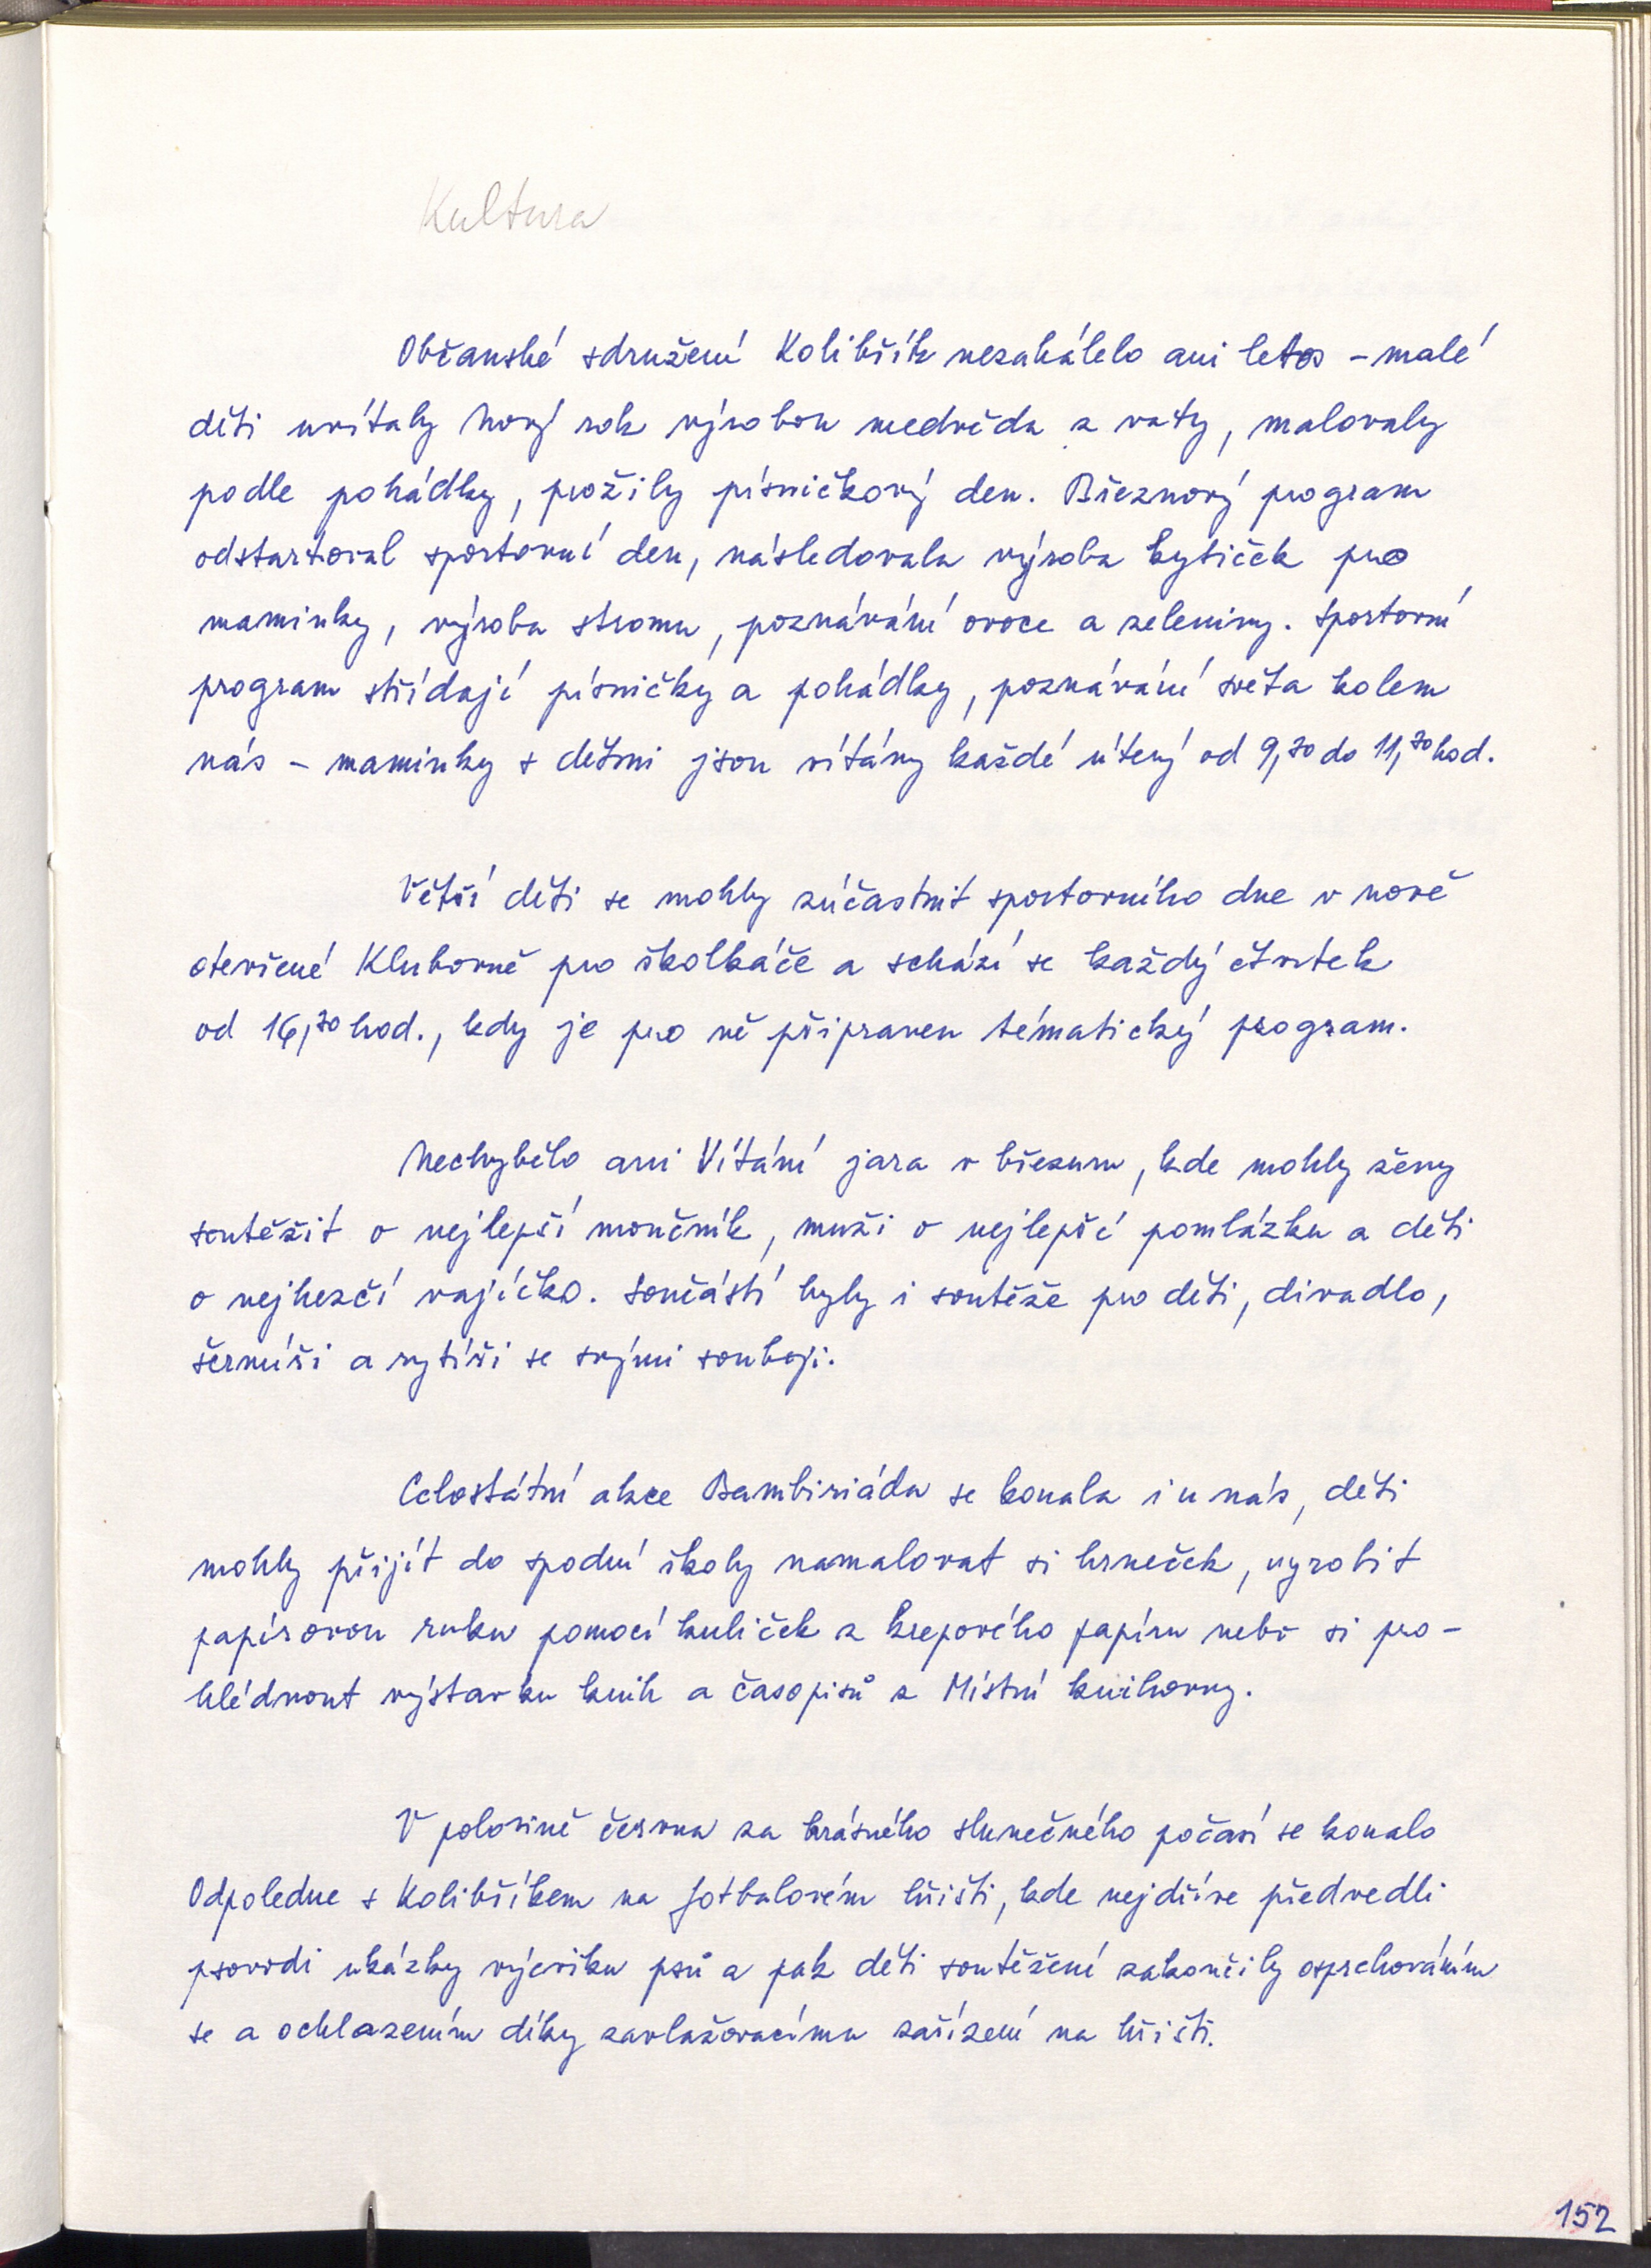 Kultura
Občanské sdružení Kolibřík nezahálelo ani letos – malé
děti uvítaly Nový rok výrobou medvěda z vaty, malovaly
podle pohádky, prožily písničkový den. Březnový program
odstartoval sportovní den, následovala výroba kytiček pro
maminky, výroba stromu, poznávání ovoce a zeleniny. Sportovní
program střídají písničky a pohádky, poznávání světa kolem
nás – maminky s dětmi jsou vítány každé úterý od 9,30 do 11,30 hod.
Větší děti se mohly zúčastnit sportovního dne v nově
otevřené Klubovně pro školkáče a schází se každý čtvrtek
od 16,30 hod., kdy je pro ně připraven tématický program.
Nechybělo ani Vítání jara v březnu, kde mohly ženy
soutěžit o nejlepší moučník, muži o nejlepší pomlázku a děti
o nejhezčí vajíčko. Součástí byly i soutěže pro děti, divadlo,
šermíři a rytíři se svými souboji.
Celostátní akce Bambiriáda se konala i u nás, děti
mohly přijít do spodní školy namalovat si hrneček, vyrobit
papírovou ruku pomocí kuliček z krepového papíru nebo si pro-
hlédnout výstavku knih a časopisů z Místní knihovny.
V polovině června za krásného slunečného počasí se konalo
Odpoledne s Kolibříkem na fotbalovém hřišti, kde nejdříve předvedli
psovodi ukázky výcviku psů a pak děti soutěžení zakončily osprchováním
se a ochlazením díky zavlažovacímu zařízení na hřišti.
152